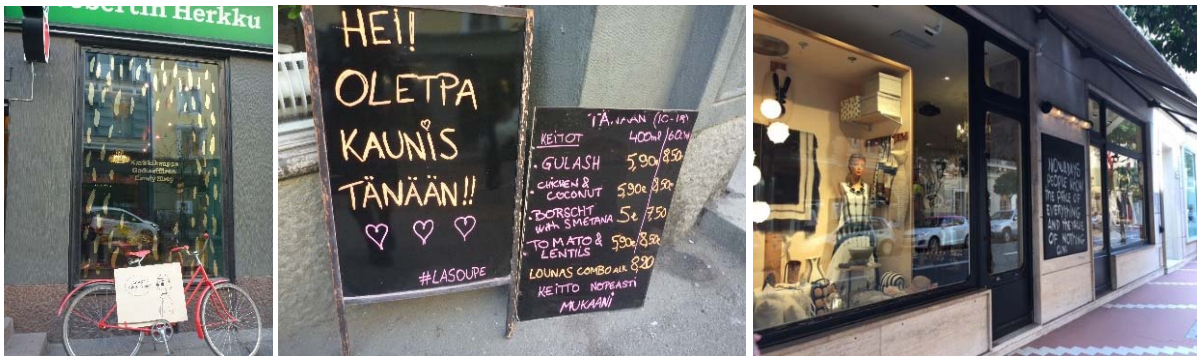 obertin Herkku
Karkkikauppa
Godisaffären
Candy Shop
HEI!
OLETPA
KAUNIS
TÄNÄÄN!!
#LASOUPE
TÄNÄÄN (10-18)
KEITOT 400ml/600ml
• GULASH 5,90€ 8,50€
• CHICKEN &
COCONUT 5,90€ 8,50€
• BORSCHT
with SMETANA 5€ 7,50
• TOMATO &
LENTILS 5,90€/8,50€
LOUNAS COMBO ALK 8,90
KEITTO NOPEASTI
MUKAANI
NOWADAYS
PEOPLE KNOW
THE PRICE OF
EVERYTHING
AND THE VALUE
OF NOTHING